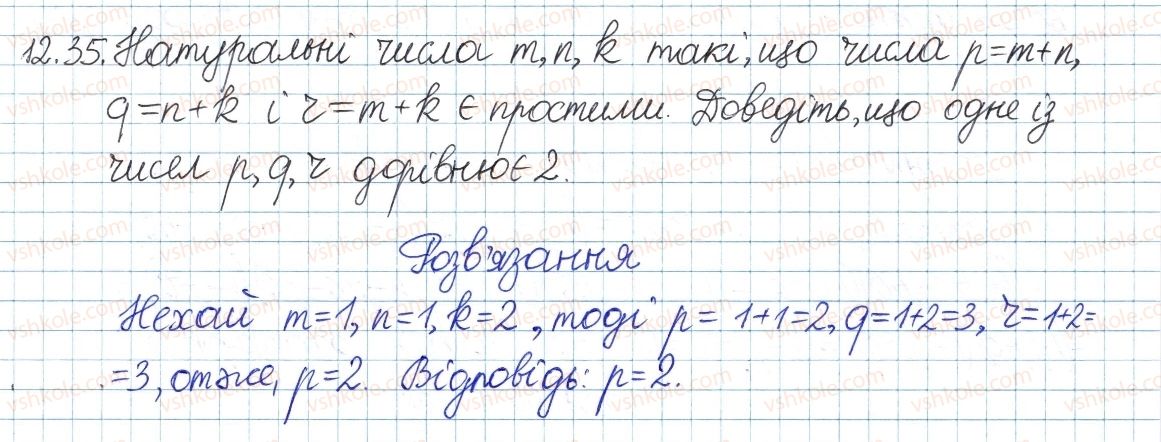 12.35. Натуральні числа m, n, k такі, що числа p=m+n,
q=n+k і r=m+k є простими. Доведіть, що одне із
чисел p, q, r дорівнює 2.
Розв'язання
Нехай m=1, n=1, k=2, тоді p= 1+1=2, q=1+2=3, r=1+2=
=3, отже, p=2. Відповідь: p=2.